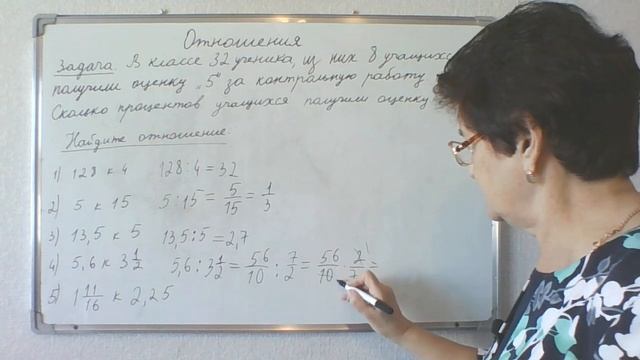 Отношения
Задача. В классе 32 ученика, из них 8 учащихся
получили оценку „5" за контрольную работу
Сколько процентов учащихся получили оценку
Найдите отношение:
1) 128 к 4 128 : 4 = 32
2) 5 к 15 5 : 15 = 5/15 = 1/3
3) 13,5 к 5 13,5 : 5 = 2,7
4) 5,6 к 3 1/2 5,6 : 3 1/2 = 56/10 : 7/2 = 56/10 · 2/7 =
5) 1 11/16 к 2,25